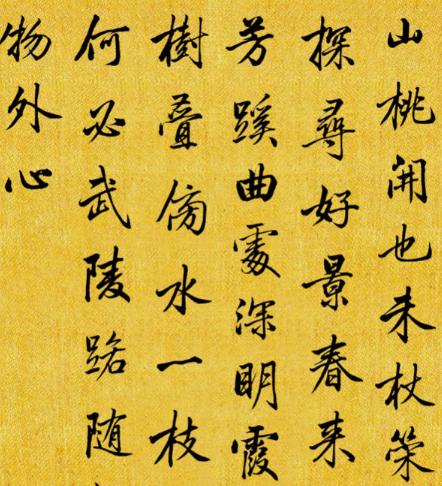 山桃開也未杖策
探尋好景春来
芳蹊曲處深明霞
樹疊傍水一枝
何必武陵路随
物外心